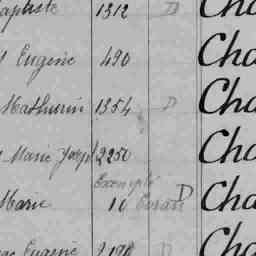 aptiste 1312 D Cha
Eugène 490 Cha
Mathurin 1354 D Cha
Marie Joseph 2250 Cha
Exempté D
Marie 10 Cha
Eugène 2190 D Cha